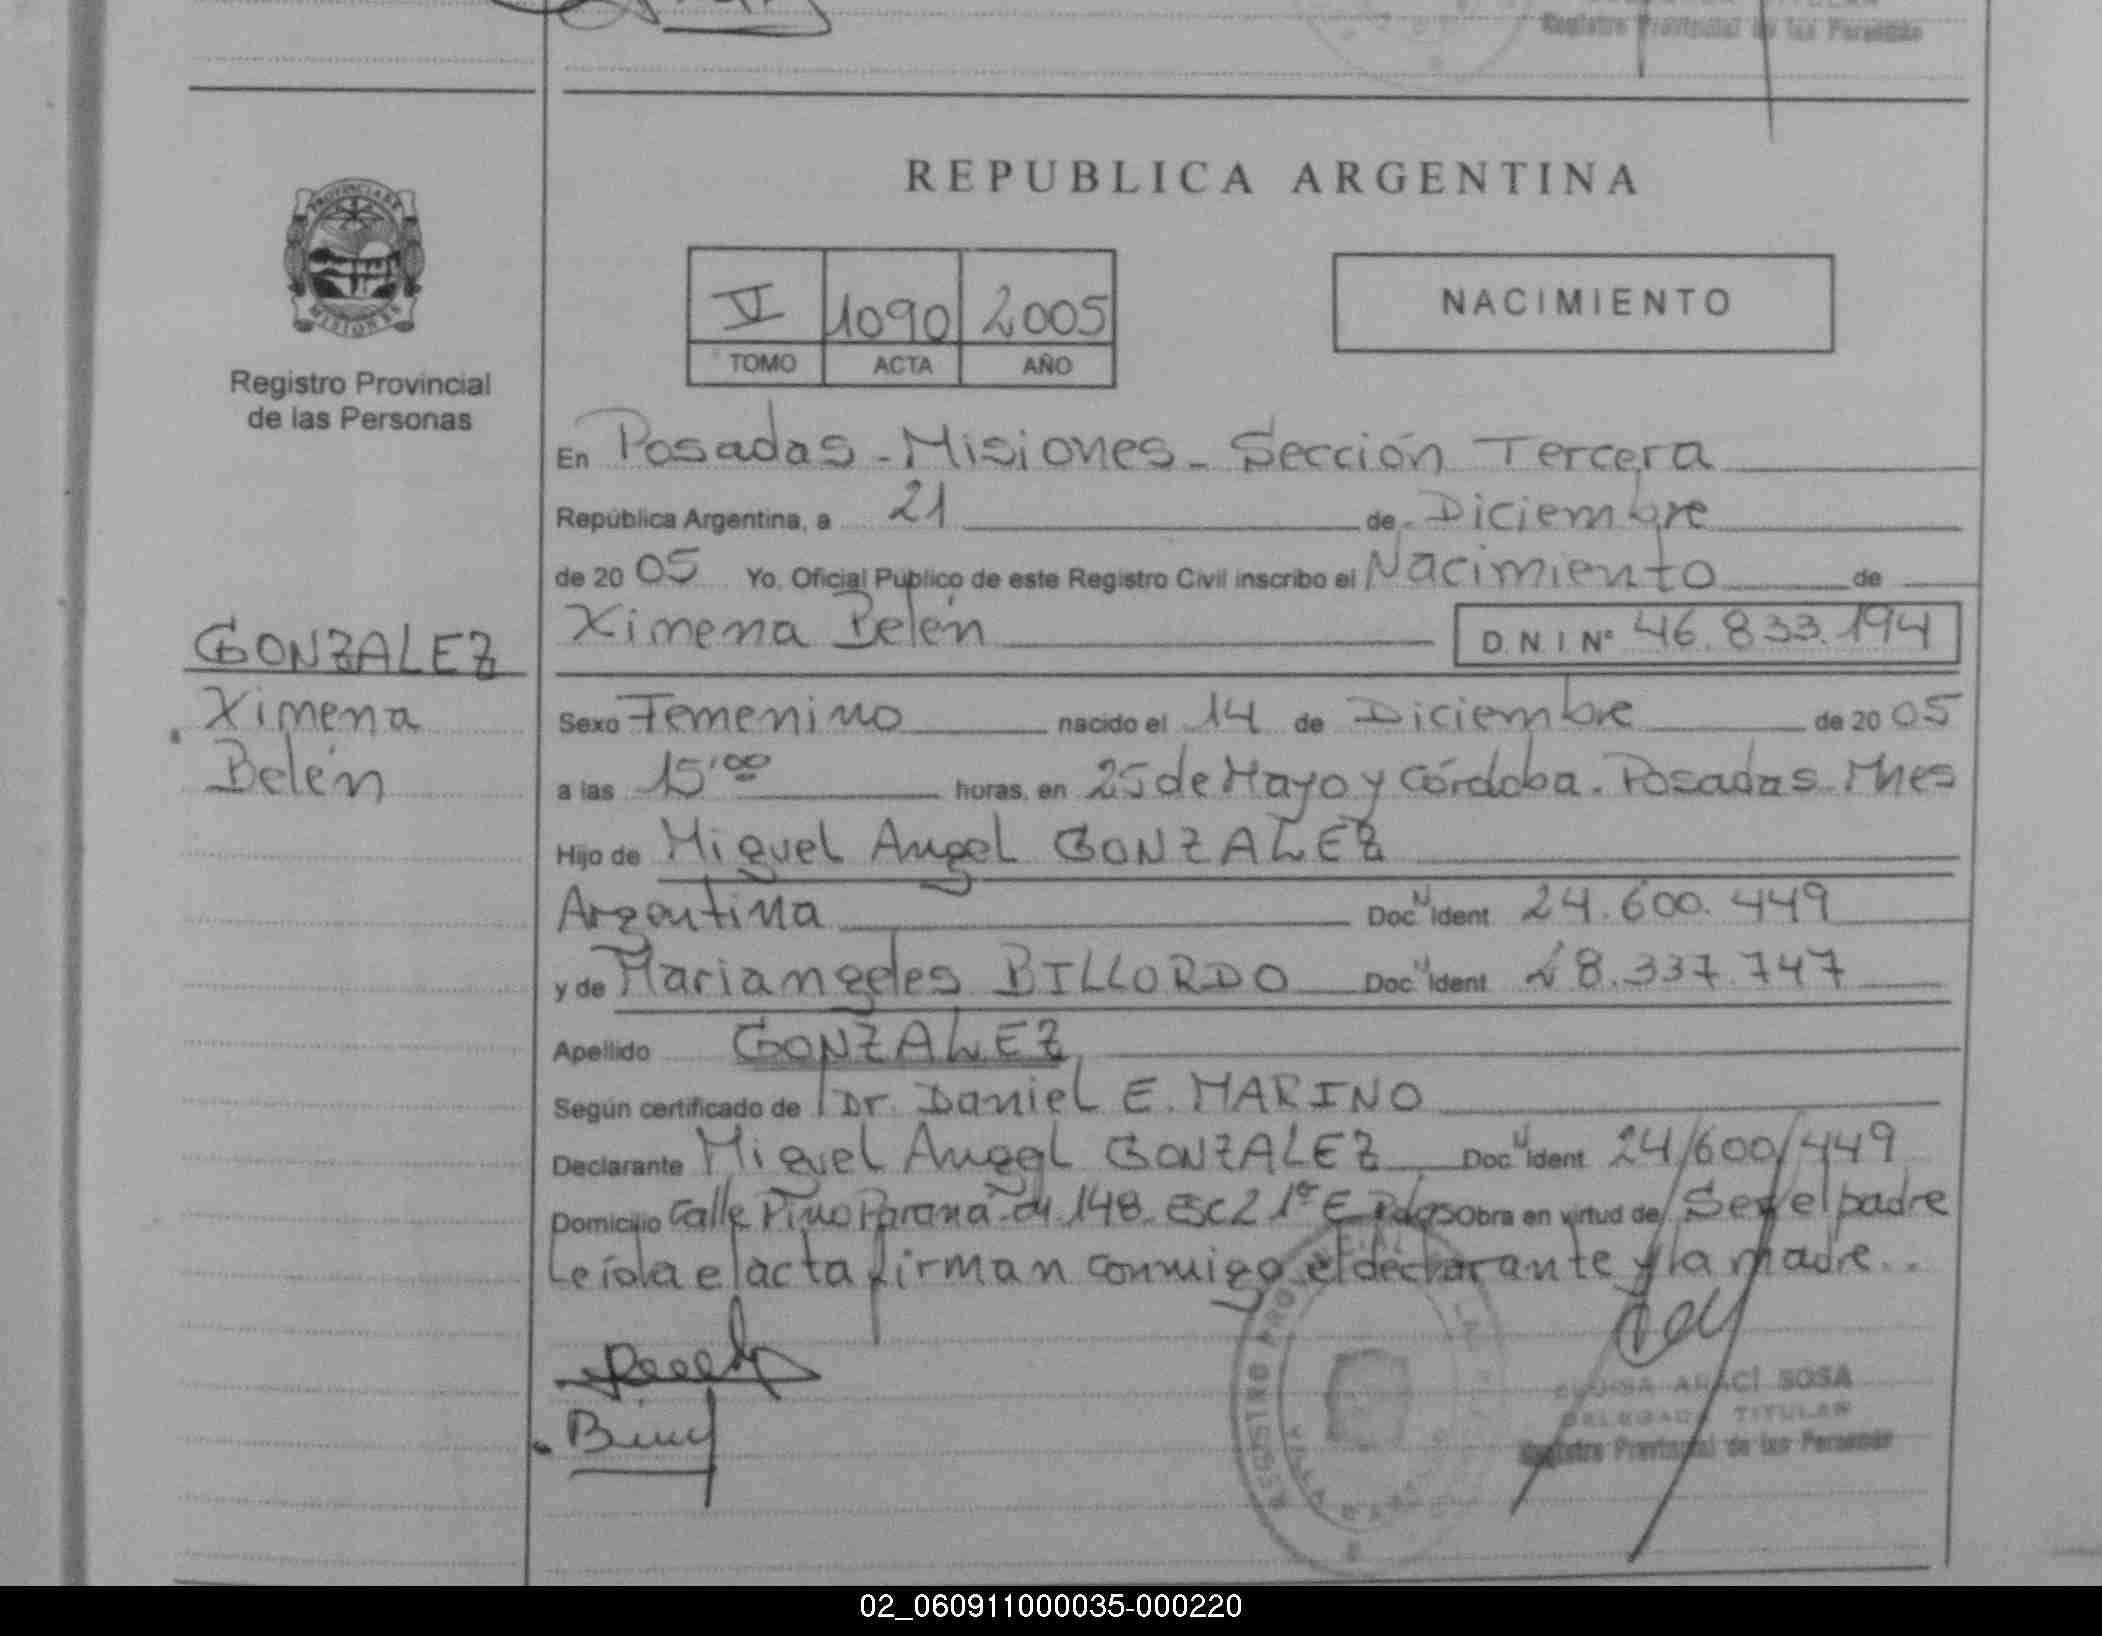 Registro Provincial de las Personas
PROVINCIA DE
MISIONES
Registro Provincial
de las Personas
GONZALEZ
Ximena
Belén
REPUBLICA ARGENTINA
VI 1090 2005
TOMO ACTA AÑO
NACIMIENTO
En Posadas - Misiones - Sección Tercera
República Argentina, a 21 de Diciembre
de 20 05 Yo, Oficial Público de este Registro Civil inscribo el Nacimiento de
Ximena Belén D.N.I. Nº 46.833.194
Sexo Femenino nacido el 14 de Diciembre de 20 05
a las 15'00 horas, en 25 de Mayo y Córdoba. Posadas - Mnes
Hijo de Miguel Angel GONZALEZ
Argentina Doc. N Ident 24.600.449
y de Mariangeles BILLORDO Doc. N Ident 28.337.747
Apellido GONZALEZ
Según certificado de Dr. Daniel E. MARINO
Declarante Miguel Angel GONZALEZ Doc. N Ident 24/600/449
Domicilio Calle Pino Paraná 148 Esc 2 1º E Pdas obra en virtud de Ser el padre
Leída el acta firman conmigo el declarante y la madre..
REGISTRO PROVINCIAL
ARACI SOSA
DELEGADA TITULAR
Registro Provincial de las Personas
02_060911000035-000220